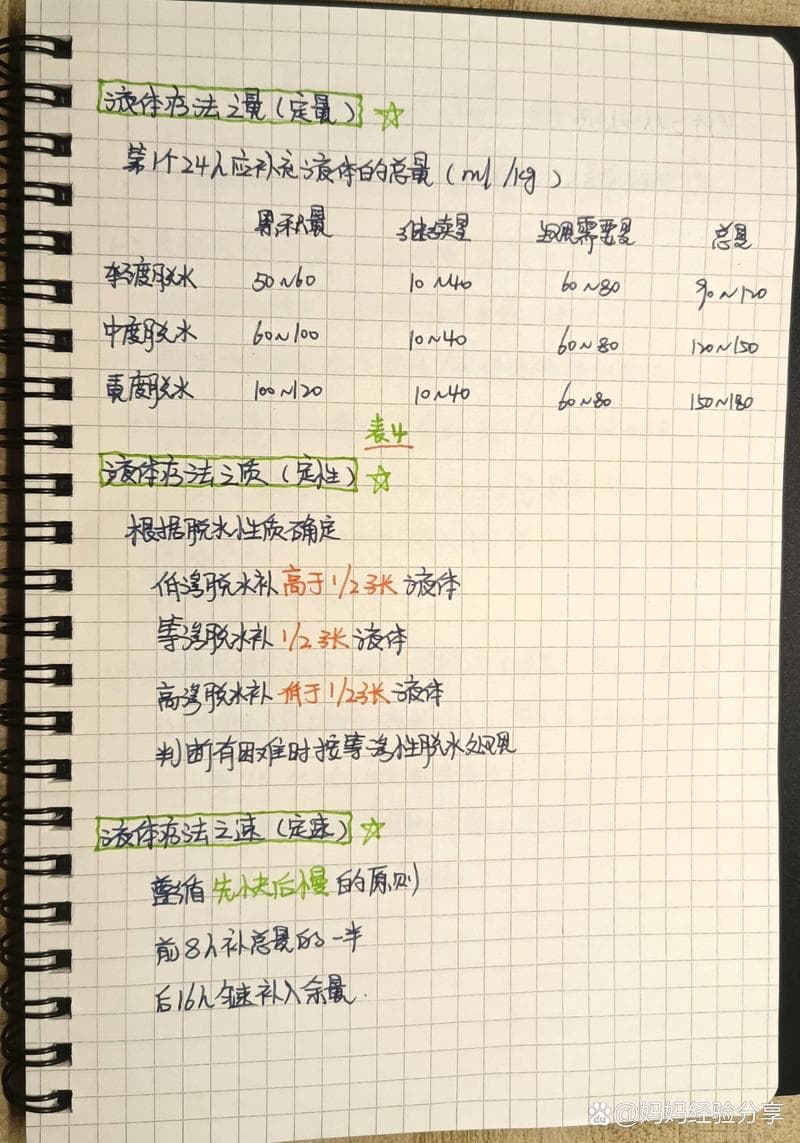 液体疗法之量(定量)☆
第1个24h应补充液体的总量(ml/kg)
累积量 继续量 生理需要量 总量
轻度脱水 50~60 10~40 60~80 90~120
中度脱水 60~100 10~40 60~80 120~150
重度脱水 100~120 10~40 60~80 150~180
表4
液体疗法之质(定性)☆
根据脱水性质确定
低渗脱水补高于1/2张液体
等渗脱水补1/2张液体
高渗脱水补低于1/2张液体
判断有困难时按等渗性脱水处理
液体疗法之速(定速)☆
遵循先快后慢的原则
前8h补总量的一半
后16h匀速补入余量.
Bai @妈妈经验分享